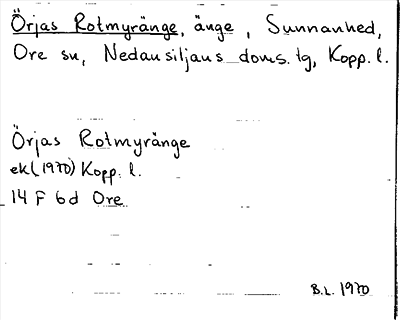 Örjas Rotmyränge, änge, Sunnanhed,
Ore sn, Nedansiljans doms. tg, Kopp. l.
Örjas Rotmyränge
ek (1970) Kopp. l.
14 F 6d Ore
B.L. 1970